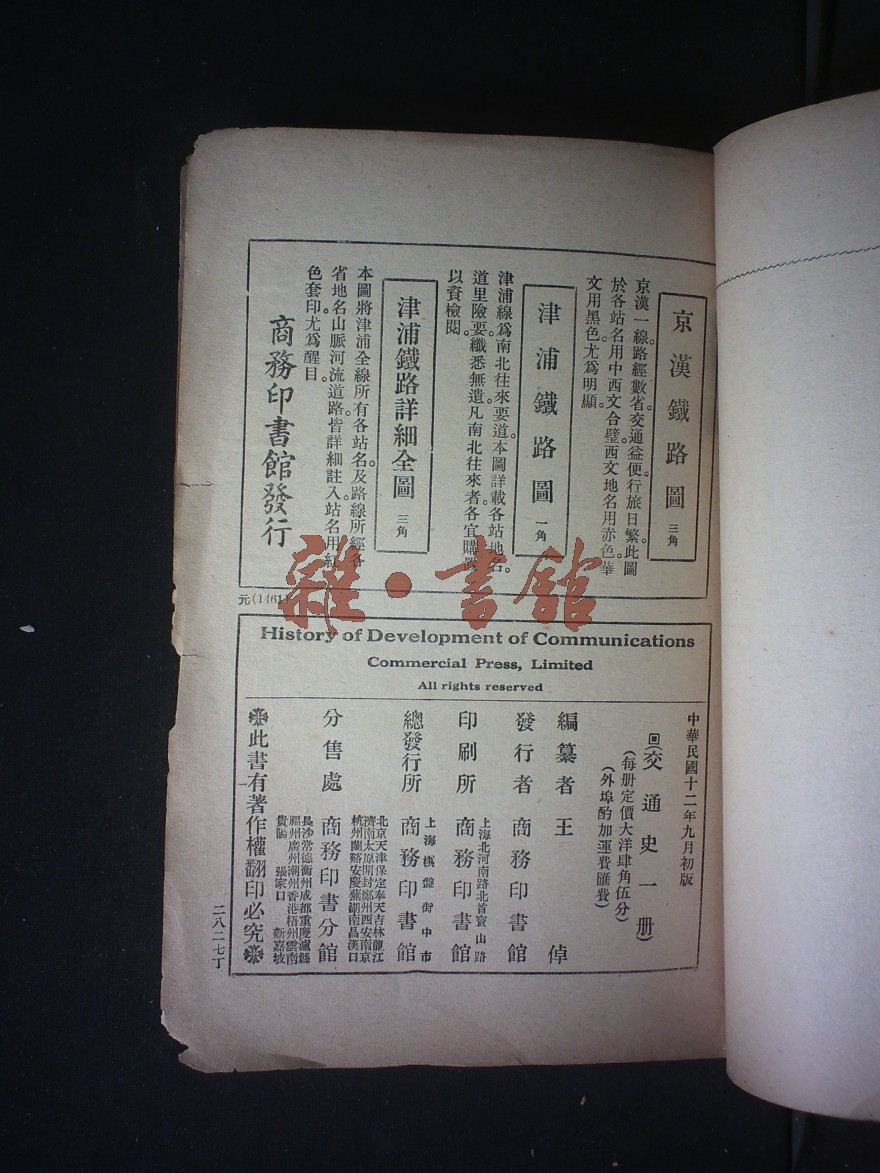 京漢鐵路圖 三角
京漢一線路經數省。交通益便。行旅日繁。此圖
於各站名用中西文合璧。西文地名用赤色。華
文用黑色。尤爲明顯。
津浦鐵路圖 一角
津浦線爲南北往來要道。本圖詳載各站地名。
道里險要。纖悉無遺。凡南北往來者。各宜購
以資檢閱。
津浦鐵路詳細全圖 三角
本圖將津浦全線所有各站名。及路線所經各
省地名山脈河流道路。皆詳細註入。站名用紅
色套印。尤爲醒目。
商務印書館發行
雜·書館
元(1461)
History of Development of Communications
Commercial Press, Limited
All rights reserved
中華民國十二年九月初版
回(交通史一册)
(每册定價大洋肆角伍分)
(外埠酌加運費匯費)
編纂者 王倬
發行者 商務印書館
印刷所 上海北河南路北首寶山路 商務印書館
總發行所 上海棋盤街中市 商務印書館
分售處 商務印書分館
北京天津保定奉天吉林龍江
濟南太原開封鄭州西安南京
杭州蘭谿安慶蕪湖南昌漢口
長沙常德衡州成都重慶瀘縣
福州廣州潮州香港梧州雲南
貴陽 張家口 新嘉坡
此書有著作權翻印必究
二八二七丁